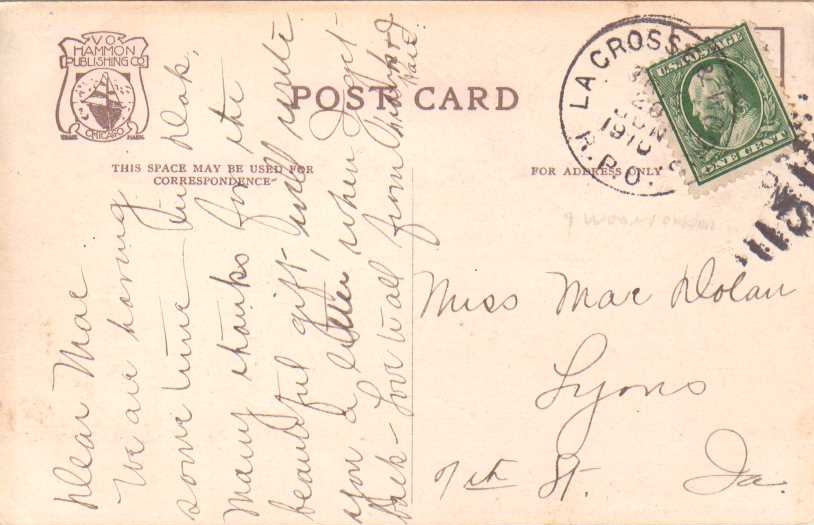 V.O.
HAMMON
PUBLISHING CO
CHICAGO
TRADE MARK
POST CARD
THIS SPACE MAY BE USED FOR
CORRESPONDENCE
FOR ADDRESS ONLY
LA CROSSE
JUN
1910
R.P.O.
U.S. POSTAGE
ONE CENT
Dear Mae
We are having
some time in Dak,
Many thanks for the
beautiful gift, will write
you a letter when I get
back – Love to all from
Miss Mae Dolan
Lyons
7th St. Ia.